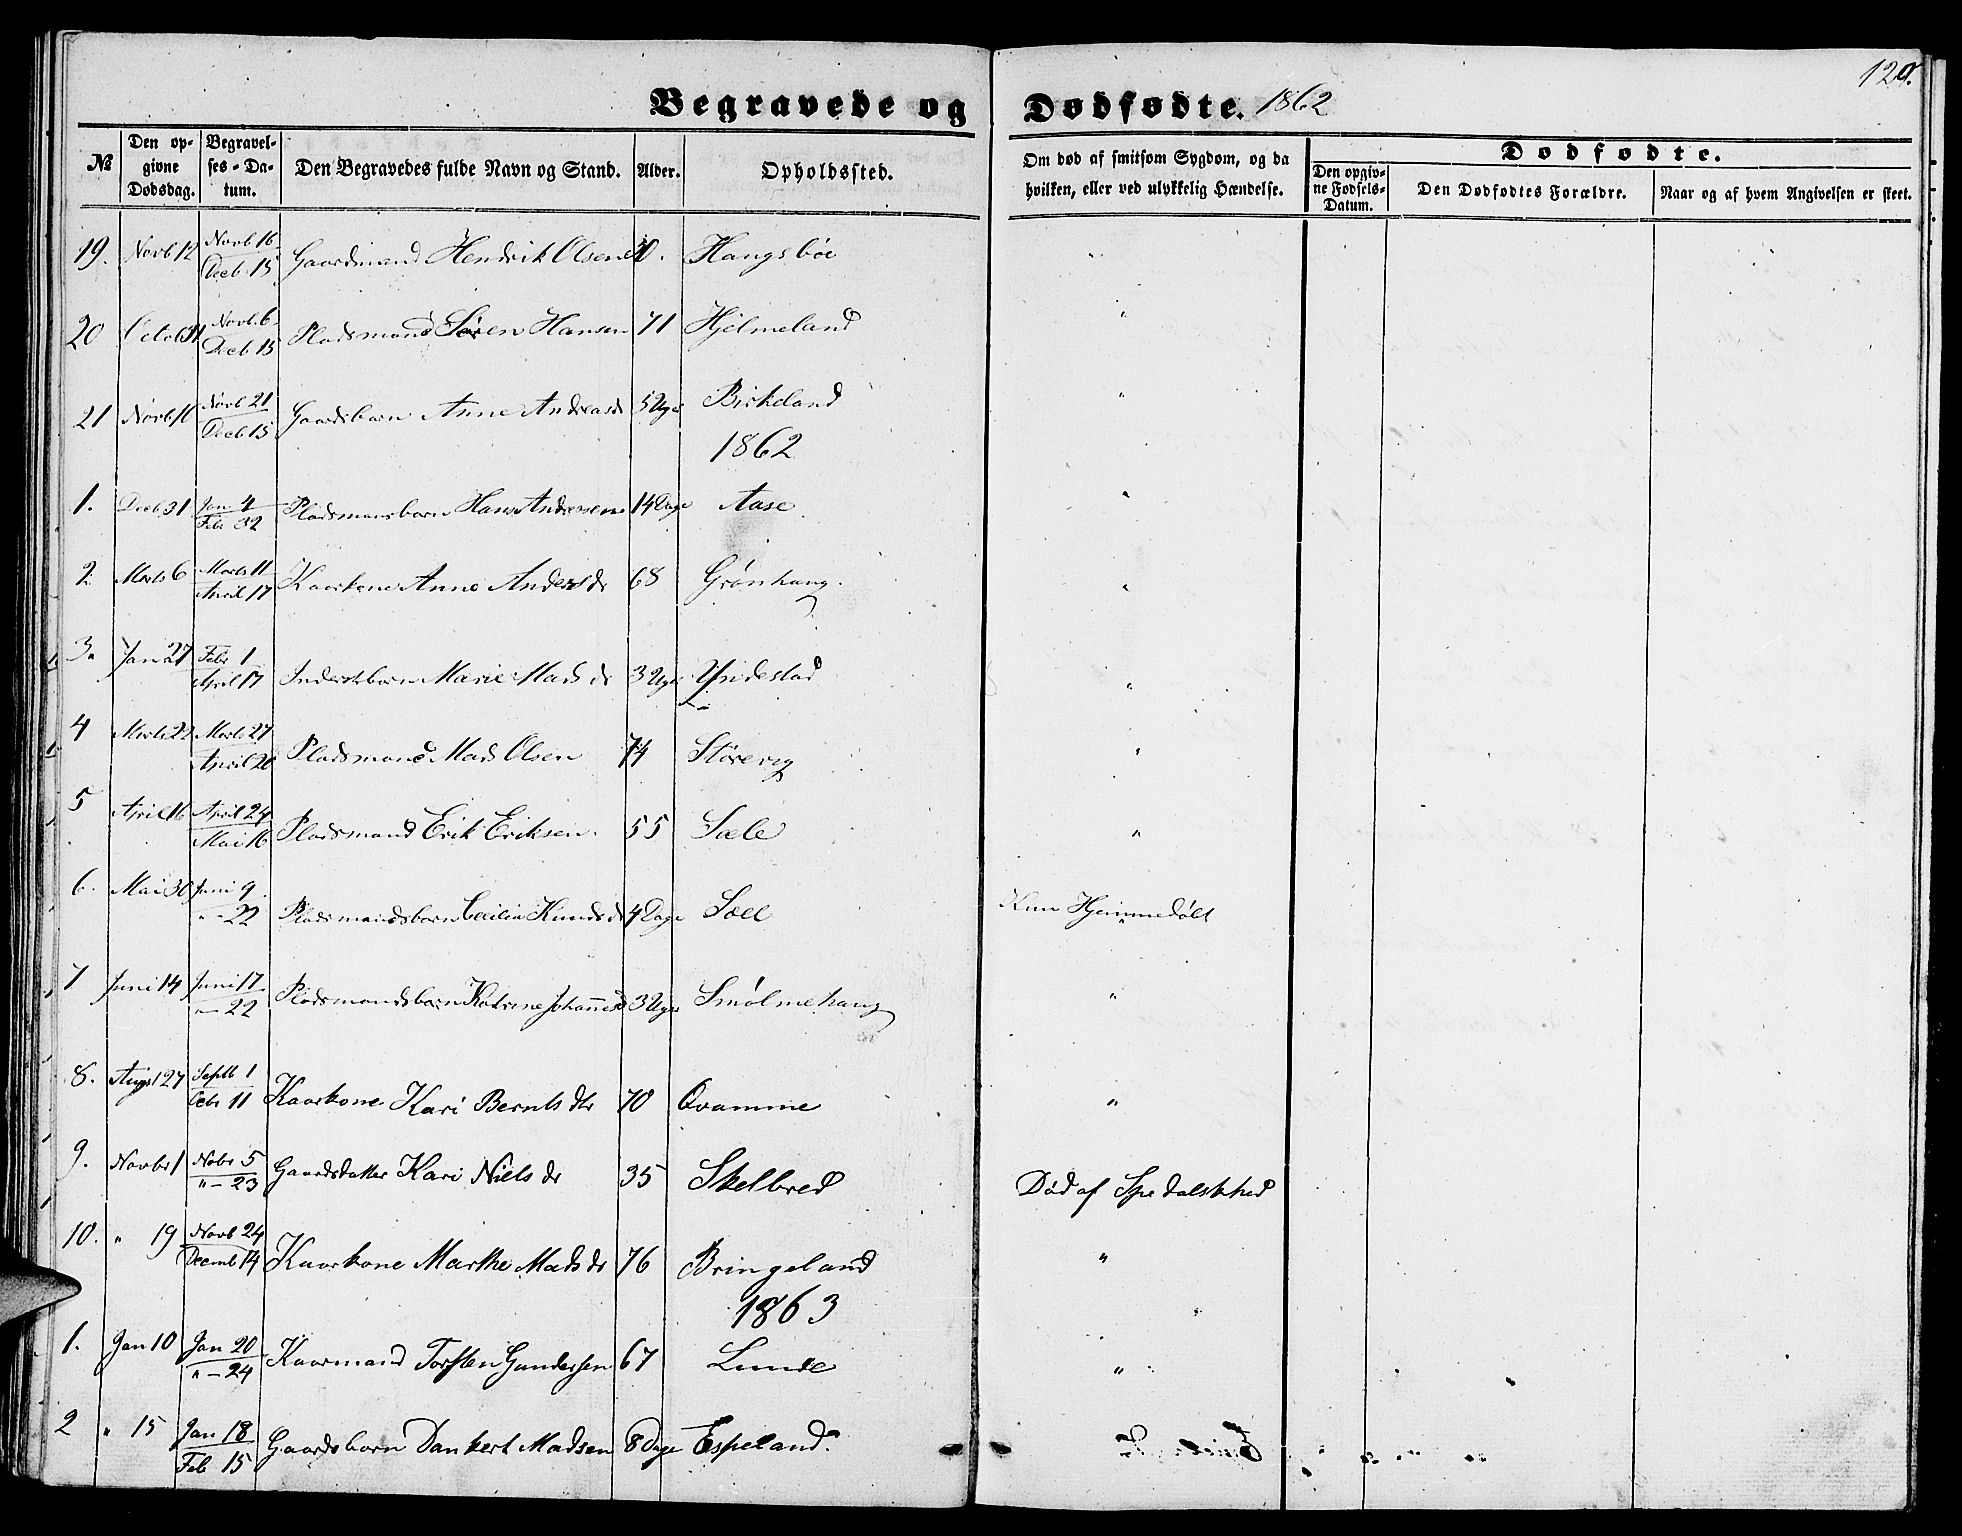 129.
Begravede og Dødfødte. 1862
№ Den opgivne Dødsdag. Begravelses-Datum. Den Begravedes fulde Navn og Stand. Alder. Opholdssted. Om død af smitsom Sygdom, og da hvilken, eller ved ulykkelig Hændelse. Dødfødte. Den opgivne Fødsels-Datum. Den Dødfødtes Forældre. Naar og af hvem Angivelsen er skeet.
19. Novb 12 Novb 16 Decb 15 Gaardmand Hendrik Olsen Hangsbøe "
20 Octob 31 Novb. 6 Decb 15 Pladsmand Søren Hansen 71 Hjelmeland "
21 Novb 16 Novb 21 Decb 15 Gaardsbarn Anne Andreasdr 5 Uger Birkeland "
1862
1. Decb 31 Jan 4 Febr Pladsmansbarn Hans Andreasen 14 Dage Aase "
2. Marts 6 Marts 11 April 17 Kaarkone Anne Andersdr 68 Grønhaug. "
3. Jan 27 Febr 1 April 17 Inderstbarn Marie Madsdr 3 Uger Yndestad "
4 Marts 22 Marts 27 April 20 Pladsmand Mads Olsen 74 Størevig "
5 April 16 April 24 Mai 16 Pladsmand Erik Eriksen. 55 Sæle "
6. Mai 30 Juni 9. " - 22 Pladsmandsbarn Cecilia Knudsdr 4 Dage Sæle Kun Hjemmedøbt
7 Juni 14 Juni 17 " - 22 Pladsmandsbarn Katrine Johannesd 3 Uger Smølmehaug "
8. Augst 27 Septb 1 Octr 11 Kaarkone Kari Berntsdtr 70 Qvamme "
9. Novbr 1 Nobr 5 " - 23 Gaardsdatter Kari Nielsdr 35 Skelbred Død af Spedalskhed
10. " 19 Novb 24 Decemb 14 Kaarkone Marthe Madsdr 76 Bringeland "
1863
1. Jan 10 Jan 20 " - 24 Kaarmand Torsten Gundersen 67 Lunde "
2 " 15 Jan 18 Feb 15 Gaardsbarn Dankert Madsen 8 Dage Espeland.